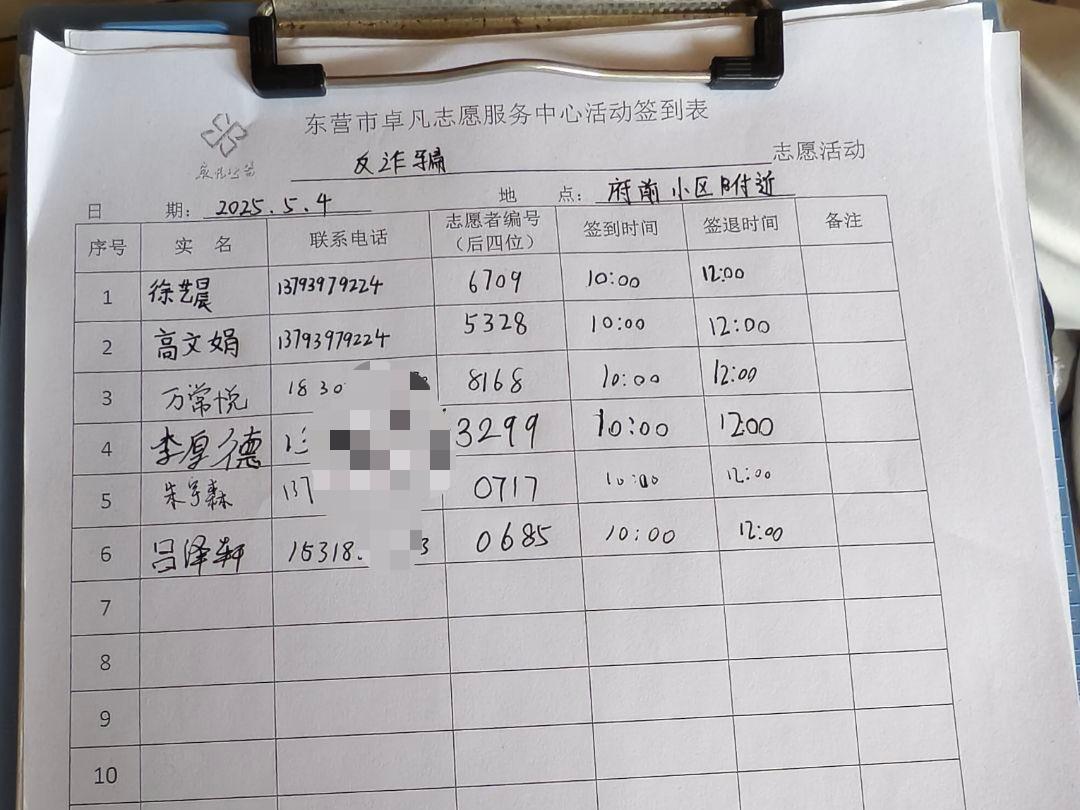 东营市卓凡志愿服务中心活动签到表
卓凡公益
反诈骗 志愿活动
日 期： 2025.5.4 地 点： 府前小区附近
序号 实 名 联系电话 志愿者编号（后四位） 签到时间 签退时间 备注
1 徐艺晨 13793979224 6709 10:00 12:00
2 高文娟 13793979224 5328 10:00 12:00
3 万常悦 1830 8168 10:00 12:00
4 李厚德 3299 10:00 12:00
5 朱宇森 137 0717 10:00 12:00
6 吕泽轩 15318. 3 0685 10:00 12:00
7
8
9
10